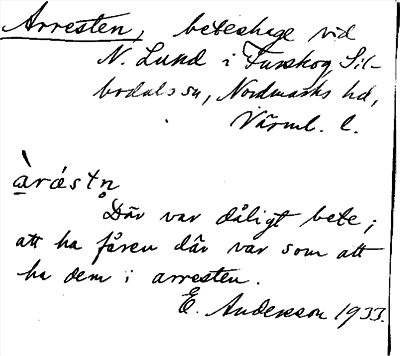 Arresten, beteshage vid
N. Lund i Tunskog Sil-
bodals sn, Nordmarks hd,
Värml. l.
àrástn̥
Där var dåligt bete;
att ha fåren där var som att
ha dem i arresten.
E. Andersson 1933.